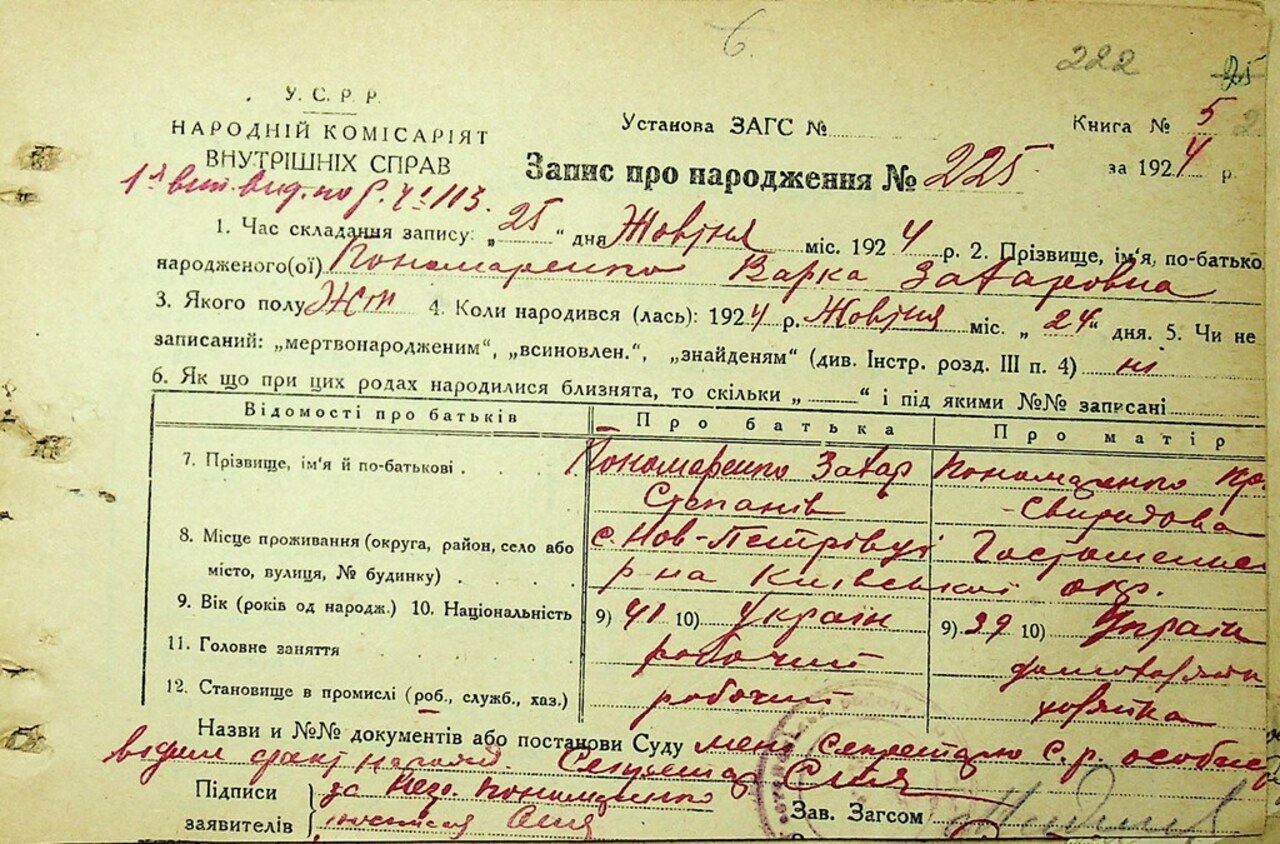 222
25
У. С. Р. Р.
НАРОДНІЙ КОМІСАРІЯТ
ВНУТРІШНІХ СПРАВ
Установа ЗАГС №
Книга № 5
Запис про народження № 225
за 1924 р.
1. Час складання запису: „25“ дня Жовтня міс. 1924 р. 2. Прізвище, ім'я, по-батько
народженого(ої) Пономаренко Варка Захаровна
3. Якого полу Жін 4. Коли народився (лась): 1924 р. Жовтня міс. „24“ дня. 5. Чи не
записаний: „мертвонародженим“, „всиновлен.“, „знайденям“ (див. Інстр. розд. III п. 4) ні
6. Як що при цих родах народилися близнята, то скільки „ “ і під якими №№ записані
Відомості про батьків Про батька Про матір
7. Прізвище, ім'я й по-батькові Пономаренко Захар Пономаренко
Степанів Свиридова
8. Місце проживання (округа, район, село або с. Нов-Петрівці Гостомельс
місто, вулиця, № будинку) р-на Київської окр.
9. Вік (років од народж.) 10. Національність 9) 41 10) Україн 9) 39 10) Україн
11. Головне заняття робочий
12. Становище в промислі (роб., служб., хаз.) робочий хозяйка
Назви и №№ документів або постанови Суду мені Секретарю с. р. особисто
відомий факт народж. Секретар
Підписи за Пономаренко
заявителів
Зав. Загсом